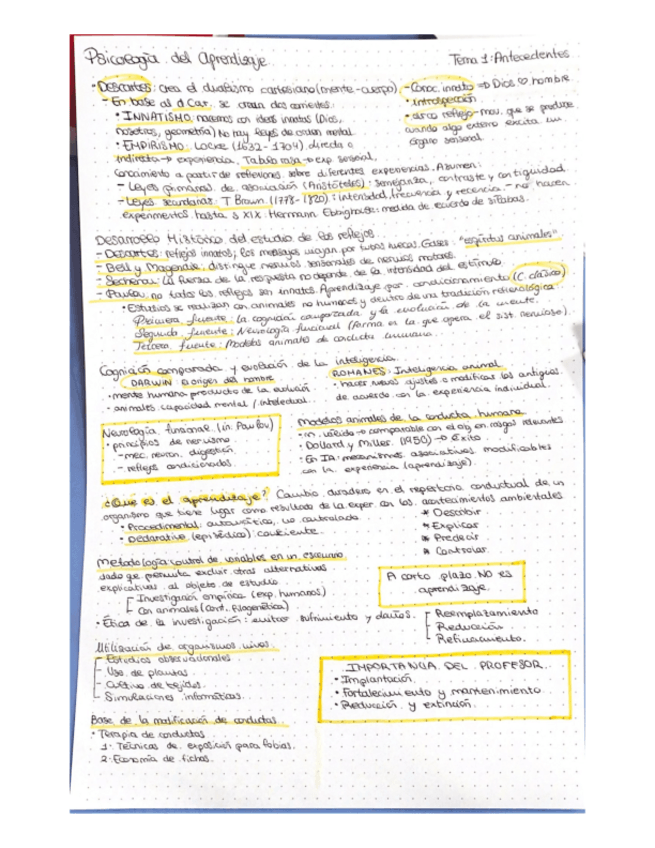 Psicología del aprendizaje
Tema 1: Antecedentes
• Descartes: crea el dualismo cartesiano (mente-cuerpo)
- Conoc. innato ⇒ Dios hombre
• introspección
• arco reflejo - mov. que se produce
cuando algo externo excita un
órgano sensorial
- En base al d Car. se crean dos corrientes:
• INNATISMO: nacemos con ideas innatas (Dios,
nosotros, geometría) No hay leyes de orden mental
• EMPIRISMO: Locke (1632-1704) directa o
indirecta → experiencia, Tabla rasa → exp sensorial,
Conocimiento a partir de reflexiones sobre diferentes experiencias. Asumen:
- Leyes primarias de asociación (Aristóteles): semejanza, contraste y contigüidad
- Leyes secundarias: T Brown (1778-1820): intensidad, frecuencia y recencia - no hacen
experimentos hasta s XIX. Hermann Ebbighouse: medida de recuerdo de sílabas.
Desarrollo Histórico del estudio de los reflejos
- Descartes: reflejos innatos; los mensajes viajan por tubos huecos. Gases: "espíritus animales"
- Bell y Magendie: distingue nervios sensoriales de nervios motores.
- Sechenov: la fuerza de la respuesta no depende de la intensidad del estímulo.
- Pavlov: no todos los reflejos son innatos. Aprendizaje por condicionamiento (C. clásico)
• Estudios se realizan con animales no humanos y dentro de una tradición
Primera fuente: la cognición comparada y la evolución de la mente.
Segunda fuente: Neurología funcional (forma en la que opera el sist. nervioso).
Tercera fuente: Modelos animales de conducta humana
Cognición comparada y evolución de la inteligencia
DARWIN: El origen del hombre
• mente humana producto de la evolución
• animales capacidad mental / intelectual.
ROMANES: Inteligencia animal
• hacer nuevos ajustes o modificar los antiguos
de acuerdo con la experiencia individual.
Neurología funcional (in: Pavlov)
• principios de nervismo
- mec. neuron. digestión
- reflejos condicionados.
Modelos animales de la conducta humana
• in. válido → comparable con el orig en rasgos relevantes
• Dollard y Miller (1950) → Éxito.
• En IA: mecanismos asociativos modificables
con la experiencia (aprendizaje).
¿Qué es el aprendizaje? Cambio duradero en el repertorio conductual de un
organismo que tiene lugar como resultado de la exper. con los acontecimientos ambientales
• Procedimental: automático, no controlado
• Declarativo (episódico): consciente
* Describir
* Explicar
* Predecir
* Controlar
Metodología: control de variables en un escenario
dado que permita excluir otras alternativas
explicativas al objeto de estudio
- Investigación empírica (exp. humanos)
- Con animales (cont. filogenética)
• Ética de la investigación: evitar sufrimiento y daños.
- Reemplazamiento
- Reducción
- Refinamiento.
A corto plazo NO es
aprendizaje.
Utilización de organismos vivos
- Estudios observacionales
- Uso de plantas
- Cultivo de tejidos
- Simulaciones informáticas.
IMPORTANCIA DEL PROFESOR
• Implantación
• Fortalecimiento y mantenimiento
• Reducción y extinción.
Base de la modificación de conductas
• Terapia de conductas
1. Técnicas de exposición para fobias.
2. Economía de fichas.